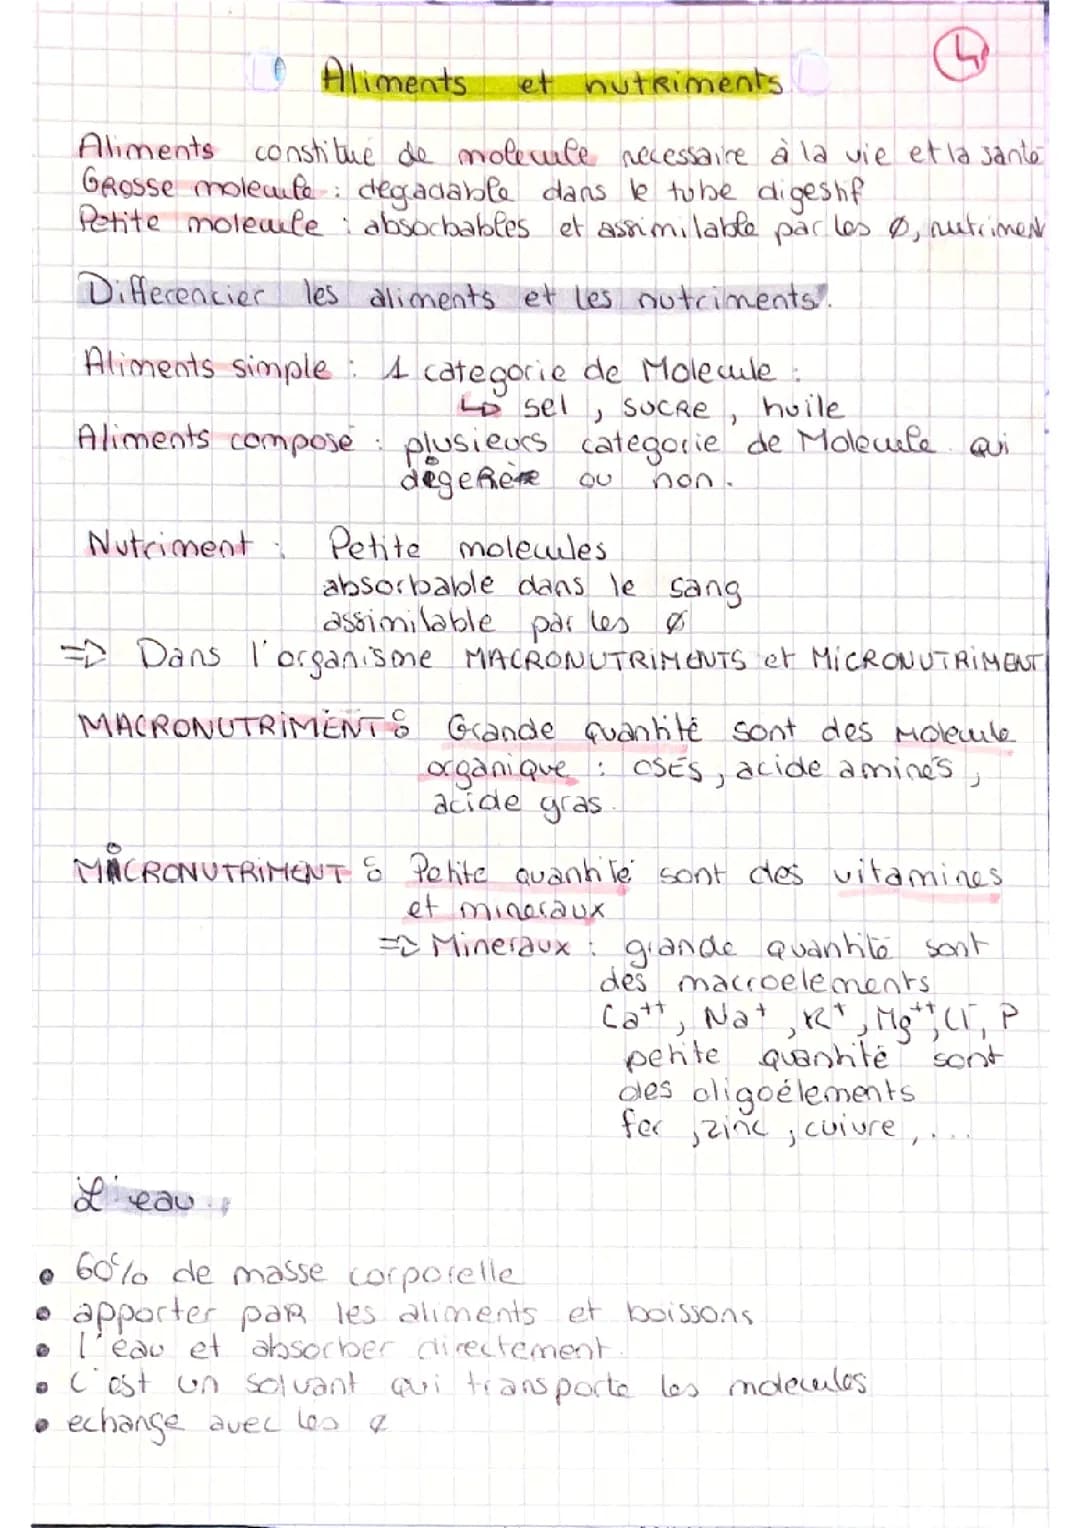 Aliments et nutriments
Aliments constitué de molecule necessaire à la vie et la santé
GROSSE molecule : degradable dans le tube digestif
Petite molecule : absorbables et assimilable par les Ø, nutriment
Differencier les aliments et les nutriments.
Aliments simple : 1 categorie de Molecule :
↳ sel, SUCRE, huile
Aliments composé : plusieurs categorie de Molecule qui
ou non.
Nutriment : Petite molecules
absorbable dans le sang
assimilable par les Ø
=> Dans l'organisme MACRONUTRIMENTS et MICRONUTRIMENT
MACRONUTRIMENTS Grande quantité sont des Molecule
organique : OSES, acide aminés,
acide gras.
MICRONUTRIMENT : Petite quantité sont des vitamines
et mineraux
=> Mineraux : grande quantité sont
des macroelements
Ca++, Na+, K+, Mg++, Cl-, P
petite quantité sont
des oligoélements
fer, zinc, cuivre, ...
L'eau.
• 60% de masse corporelle
• apporter paR les aliments et boissons
• l'eau et absorber directement.
• C'est un solvant qui transporte les molecules
• echange avec les Ø